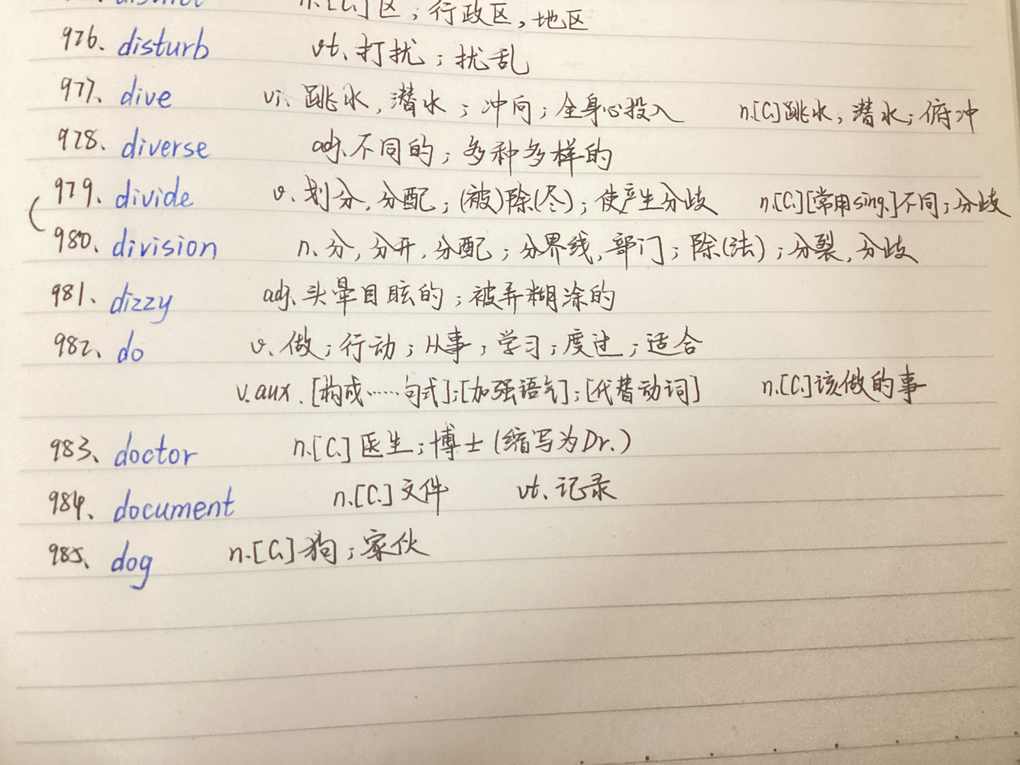 district n.[C.]区；行政区,地区
976、disturb vt.打扰；扰乱
977、dive vi.跳水,潜水；冲向；全身心投入 n.[C.]跳水,潜水；俯冲
978、diverse adj.不同的；多种多样的
979、divide v.划分,分配；(被)除(尽)；使产生分歧 n.[C.][常用sing.]不同；分歧
980、division n.分,分开,分配；分界线,部门；除(法)；分裂,分歧
981、dizzy adj.头晕目眩的；被弄糊涂的
982、do v.做；行动；从事；学习；度过；适合
v.aux.[构成……句式]；[加强语气]；[代替动词] n.[C.]该做的事
983、doctor n.[C.]医生；博士(缩写为Dr.)
984、document n.[C.]文件 vt.记录
985、dog n.[C.]狗；家伙